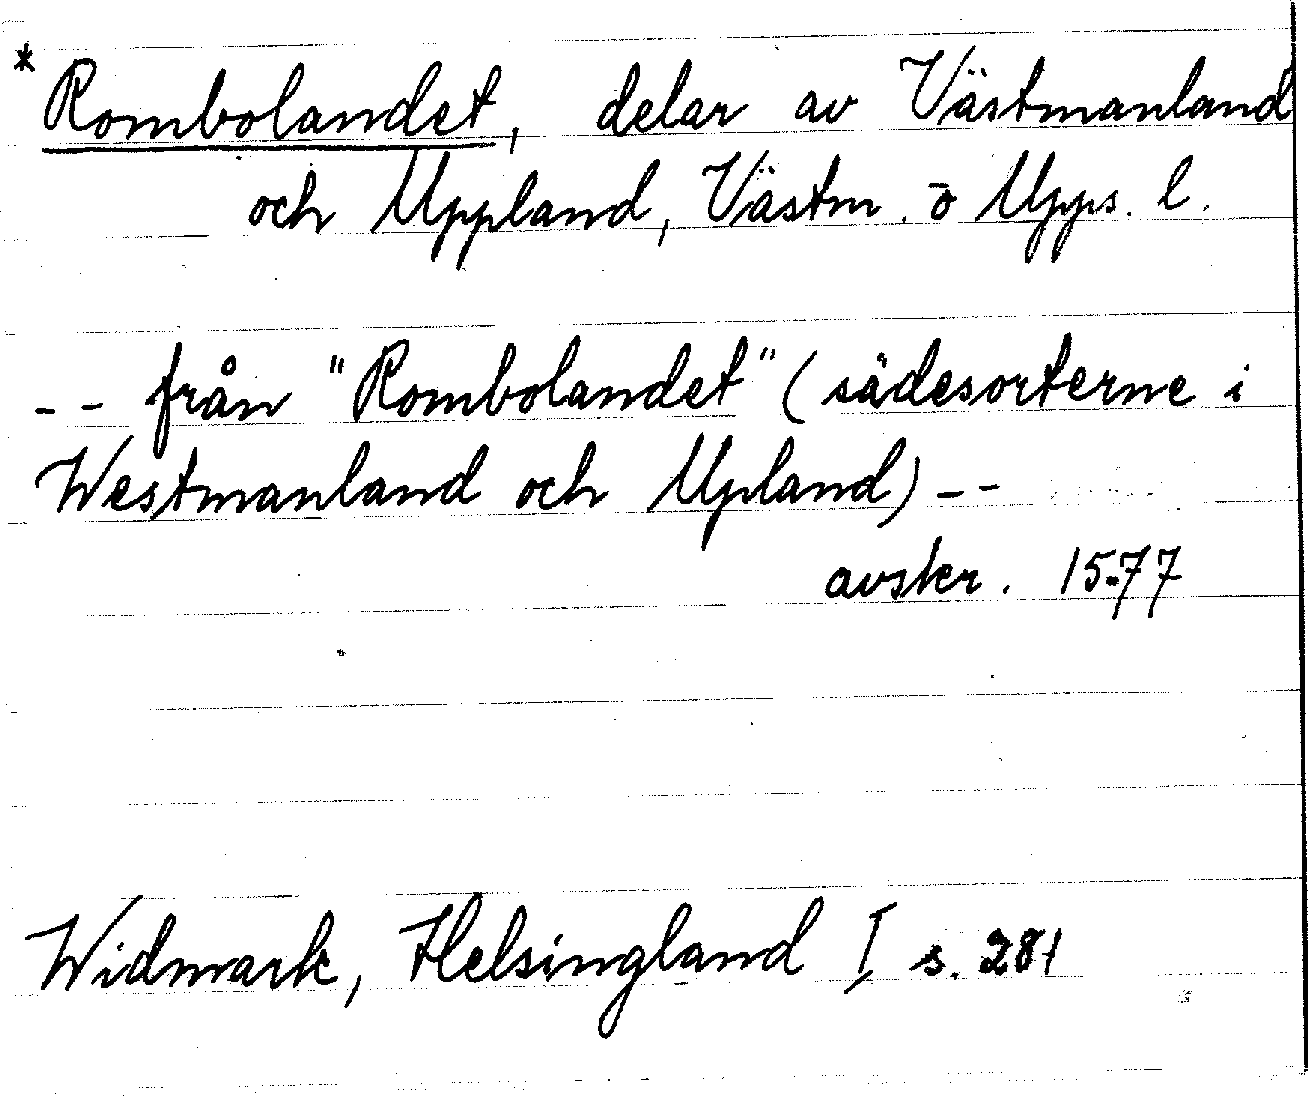 * Rombolandet, delar av Västmanland
och Uppland, Västm. o Upps. l.
-- från "Rombolandet" (sädesorterne i
Westmanland och Upland) --
avskr. 1577
Widmark, Helsingland I s. 281